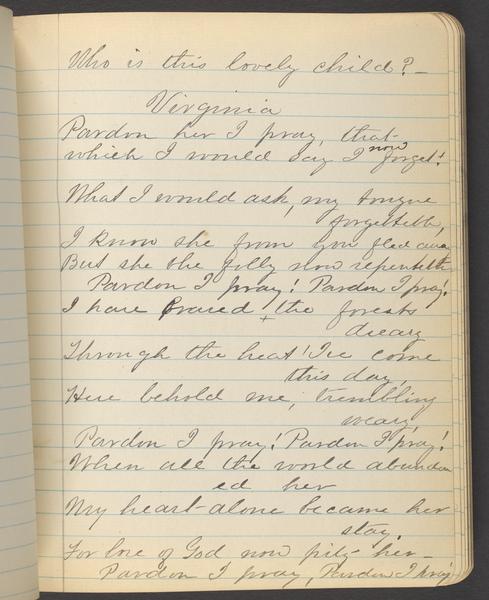 Who is this lovely child? –
Virginia
Pardon her I pray, that
which I would say I now forget!
What I would ask, my tongue
forgetteth,
I know she from you fled away
But she the folly now repenteth
Pardon I pray! Pardon I pray!
I have braved the forests
dreary
Through the heat! I've come
this day
Here behold me, trembling
weary,
Pardon I pray! Pardon I pray!
When all the world abandon
ed her
My heart alone became her
stay.
For love of God now pity her –
Pardon I pray, Pardon I pray